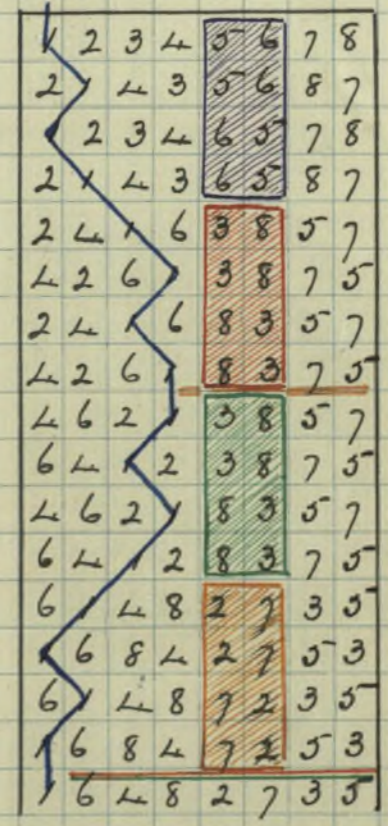 1 2 3 4 5 6 7 8
2 1 4 3 5 6 8 7
1 2 3 4 6 5 7 8
2 1 4 3 6 5 8 7
2 4 1 6 3 8 5 7
4 2 6 1 3 8 7 5
2 4 1 6 8 3 5 7
4 2 6 1 8 3 7 5
4 6 2 1 3 8 5 7
6 4 1 2 3 8 7 5
4 6 2 1 8 3 5 7
6 4 1 2 8 3 7 5
6 1 4 8 2 7 3 5
1 6 8 4 2 7 5 3
6 1 4 8 7 2 3 5
1 6 8 4 7 2 5 3
1 6 4 8 2 7 3 5